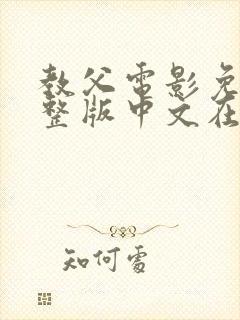 教父电影免
整版中文在
知何处